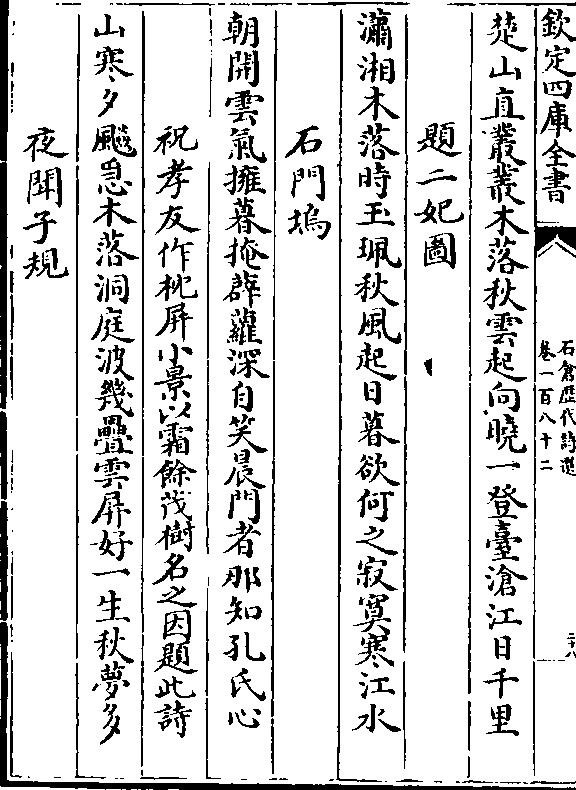 欽定四庫全書
石倉歴代詩選
卷一百八十二
楚山直叢叢木落秋雲起向曉一登臺滄江日千里
題二妃圖
瀟湘木落時玉珮秋風起日暮欲何之寂寞寒江水
石門塢
朝開雲氣擁暮掩薜蘿深自笑晨門者那知孔氏心
祝孝友作枕屏小景以霜餘茂樹名之因題此詩
山寒夕飈急木落洞庭波幾疊雲屏好一生秋夢多
夜聞子規